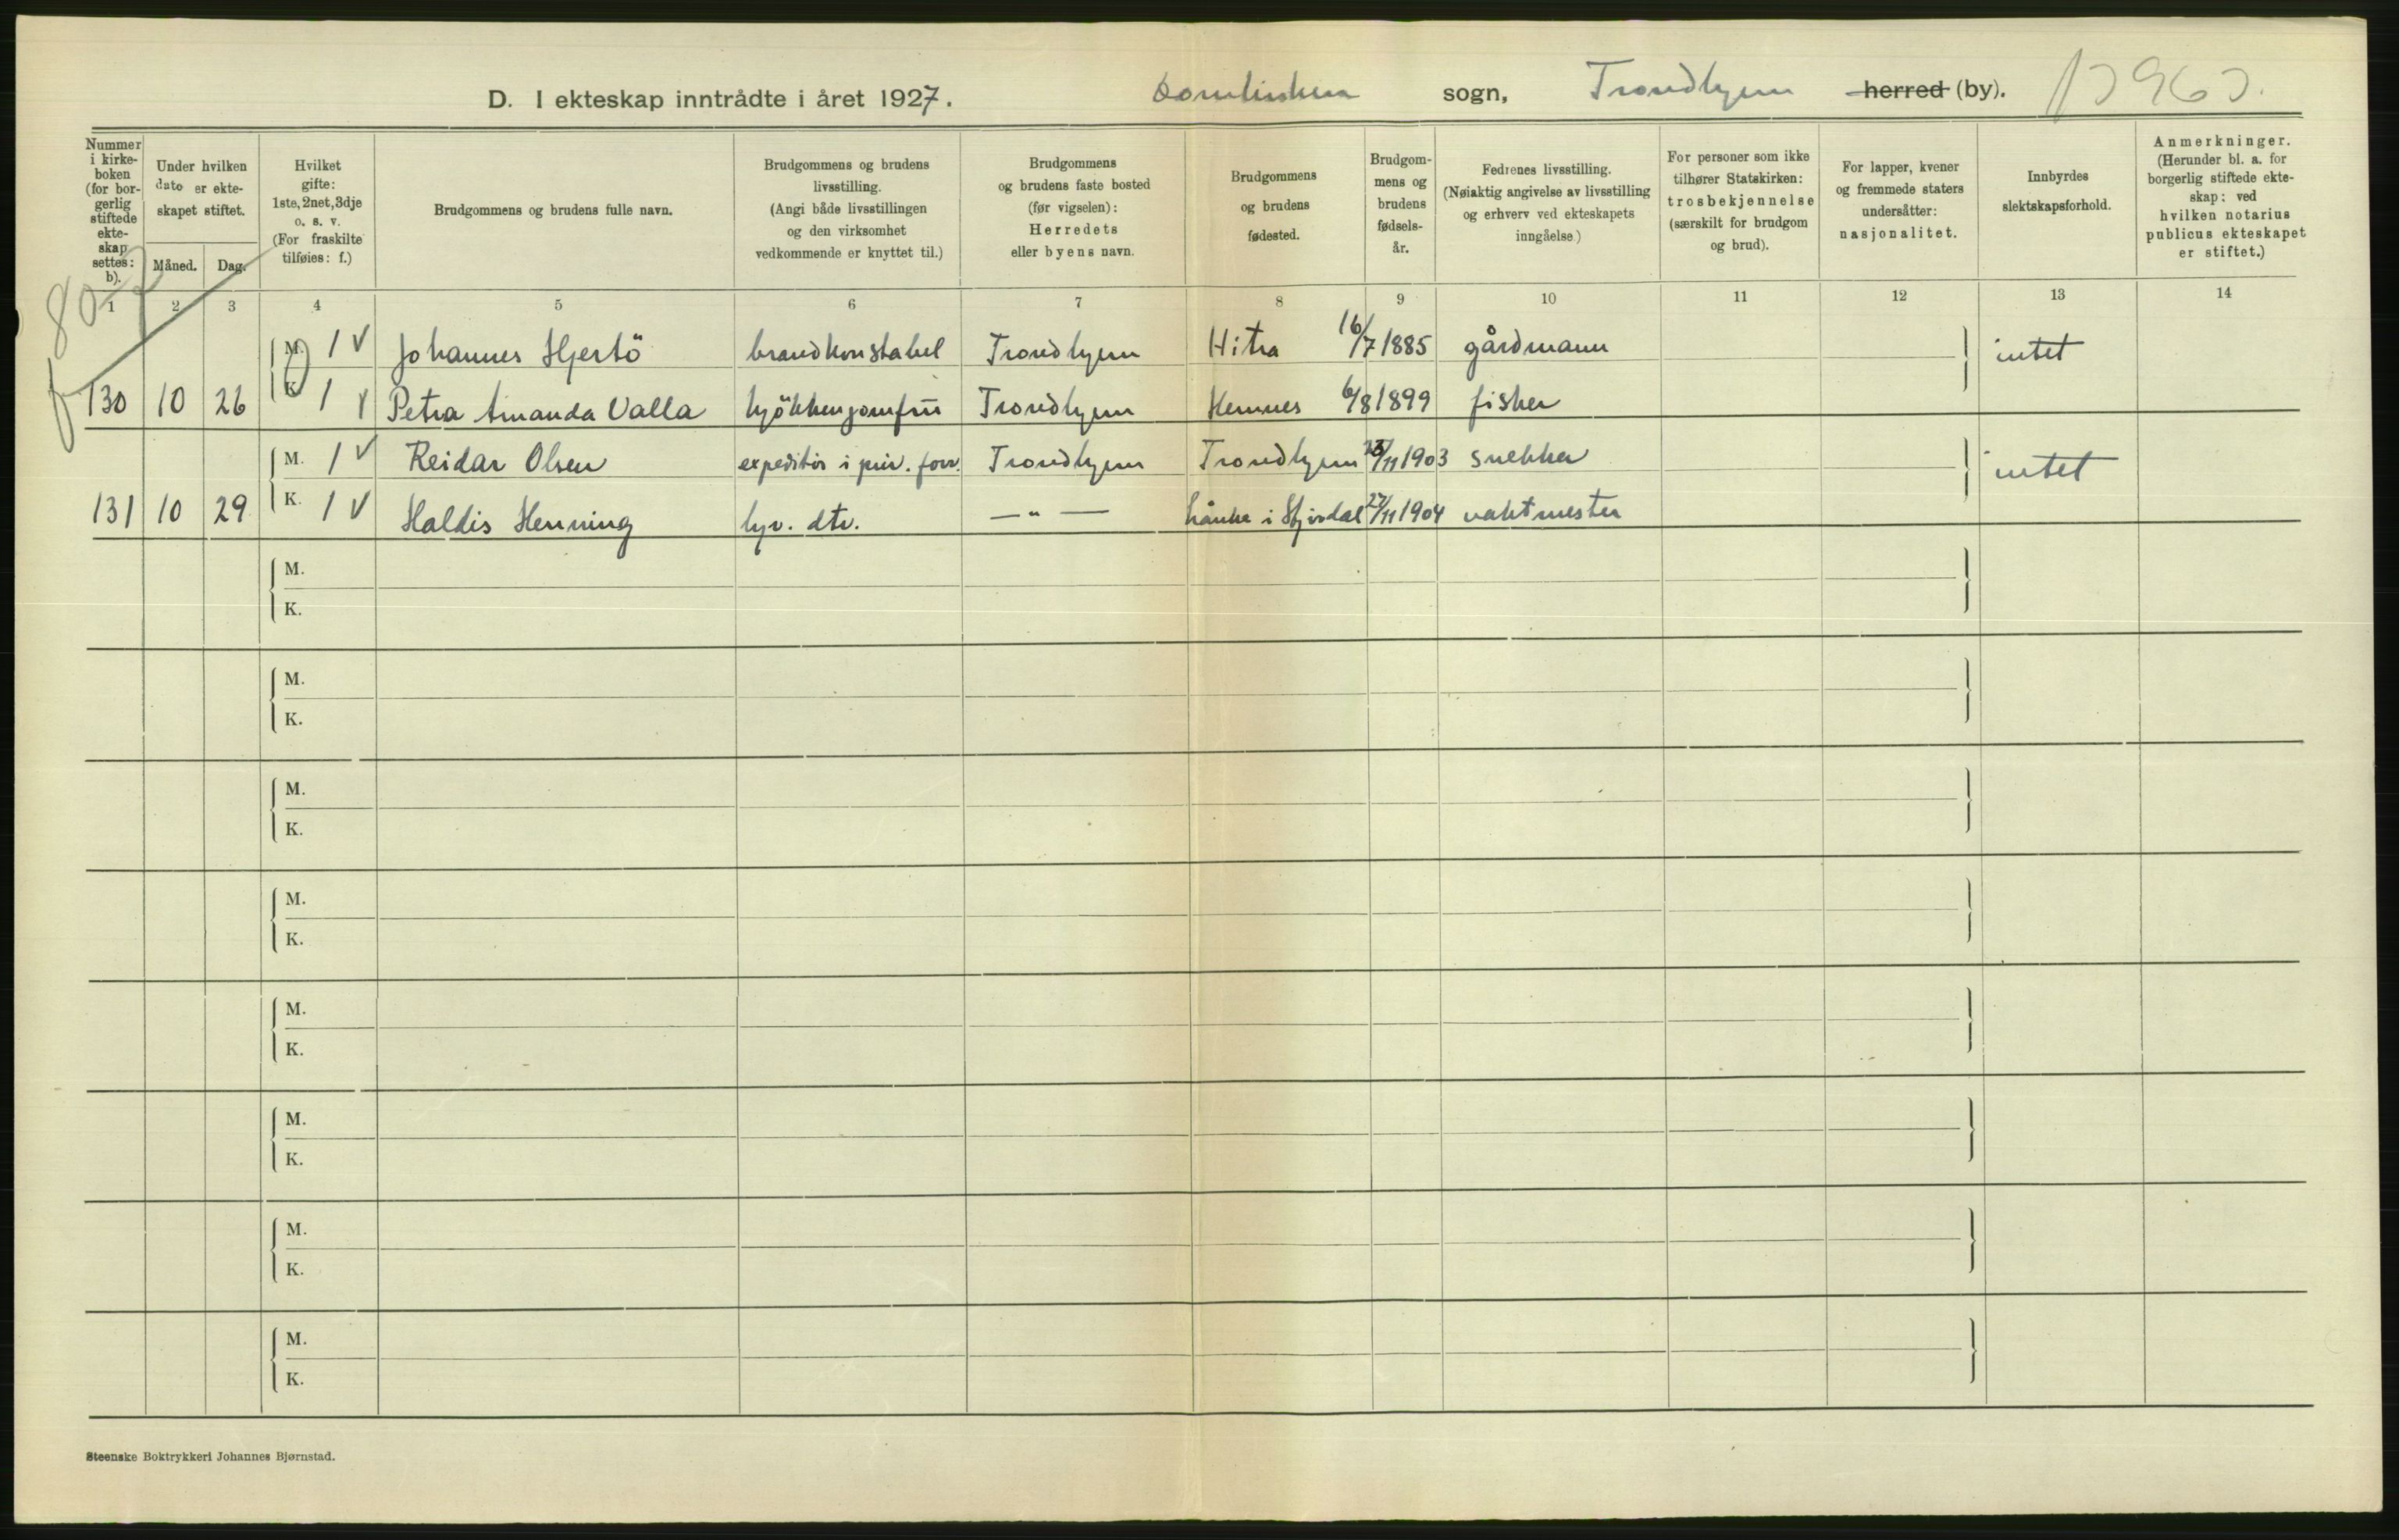 D. I ekteskap inntrådte i året 1927.
Domkirken sogn, Trondhjem herred (by).
Nummer i kirke-boken (for bor-gerlig stiftede ekte-skap settes: b).
Under hvilken dato er ekte-skapet stiftet.
Måned. Dag.
Hvilket gifte: 1ste, 2net, 3dje o. s. v. (For fraskilte tilføies: f.)
Brudgommens og brudens fulle navn.
Brudgommens og brudens livsstilling. (Angi både livsstillingen og den virksomhet vedkommende er knyttet til.)
Brudgommens og brudens faste bosted (før vigselen): Herredets eller byens navn.
Brudgommens og brudens fødested.
Brudgom-mens og brudens fødsels-år.
Fedrenes livsstilling. (Nøiaktig angivelse av livsstilling og erhverv ved ekteskapets inngåelse)
For personer som ikke tilhører Statskirken: trosbekjennelse (særskilt for brudgom og brud).
For lapper, kvener og fremmede staters undersåtter: nasjonalitet.
Innbyrdes slektskapsforhold.
Anmerkninger. (Herunder bl. a. for borgerlig stiftede ekte-skap: ved hvilken notarius publicus ekteskapet er stiftet.)
1 2 3 4 5 6 7 8 9 10 11 12 13 14
M. 1 Johannes Hjertö brandkonstabel Trondhjem Hitra 16/7 1885 gårdmann intet
130 10 26 K. 1 Petra Amanda Valla kjökkenjomfru Trondhjem Hemnes 6/8 1899 fisker
M. 1 Reidar Olsen expeditör i priv. forr. Trondhjem Trondhjem 23/11 1903 snekker intet
131 10 29 K. 1 Haldis Henning hjv. dtr. — " — Lånke i Stjørdal 27/11 1904 vaktmester
M.
K.
M.
K.
M.
K.
M.
K.
M.
K.
M.
K.
M.
K.
M.
K.
Steenske Boktrykkeri Johannes Bjørnstad.